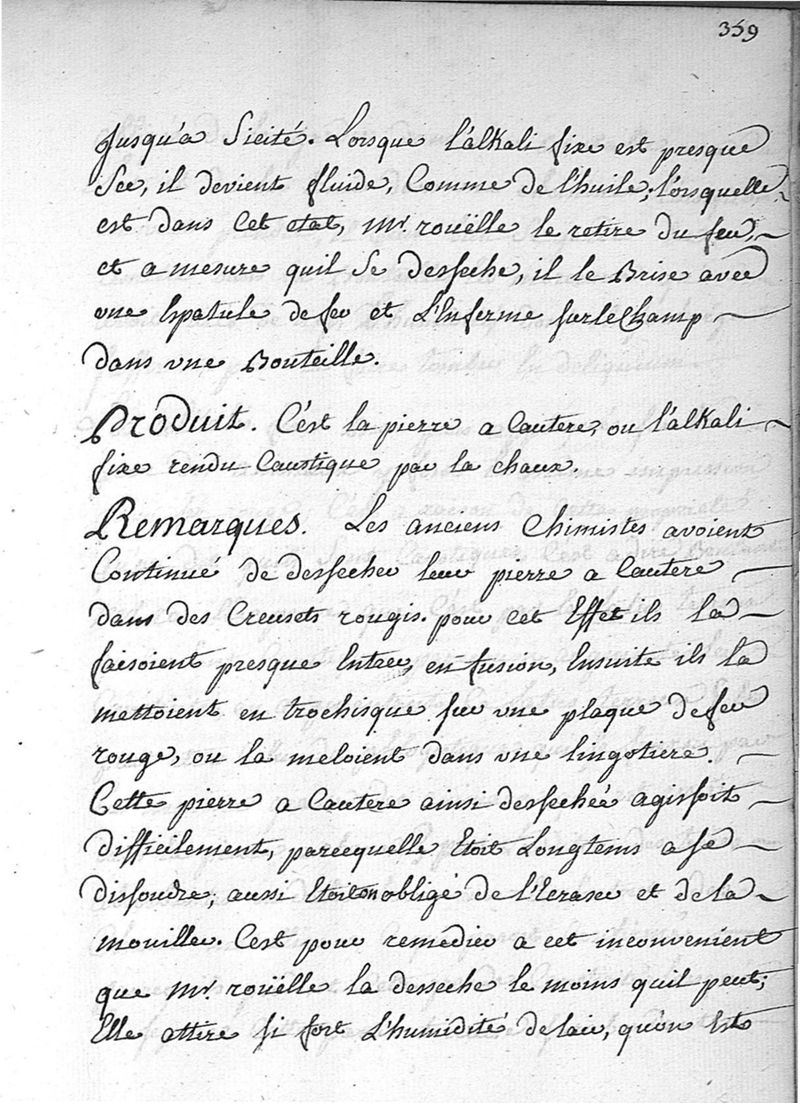 359
Jusqu'a Siccité. Lorsque l'alkali fixe est presque
Sec, il devient fluide, Comme de l'huile; lorsquelle
est dans Cet etat, Mr. rouëlle le retire du feu,
et a mesure quil Se desseche, il le Brise avec
une Spatule de fer et L'Enferme sur le Champ
dans une Bouteille.
Produit. C'est la pierre a Cautere, ou l'alkali
fixe rendu Caustique par la chaux.
Remarques. Les anciens Chimistes avoient
Continué de dessecher leur pierre a Cautere
dans des Creusets rougis. pour cet Effet ils la
faisoient presque Entrer en fusion, Ensuite ils la
mettoient en trochisque sur une plaque de fer
rouge, ou la meloient dans une lingotiere.
Cette pierre a Cautere ainsi dessechée agissoit
difficilement, parcequelle Etoit Longtems a se
dissoudre; aussi Etoit on obligé de l'Ecraser et de la
mouiller. C'est pour remedier a cet inconvenient
que Mr. rouëlle la desseche le moins quil peut;
Elle attire si fort L'humidité de lair, qu'on Est